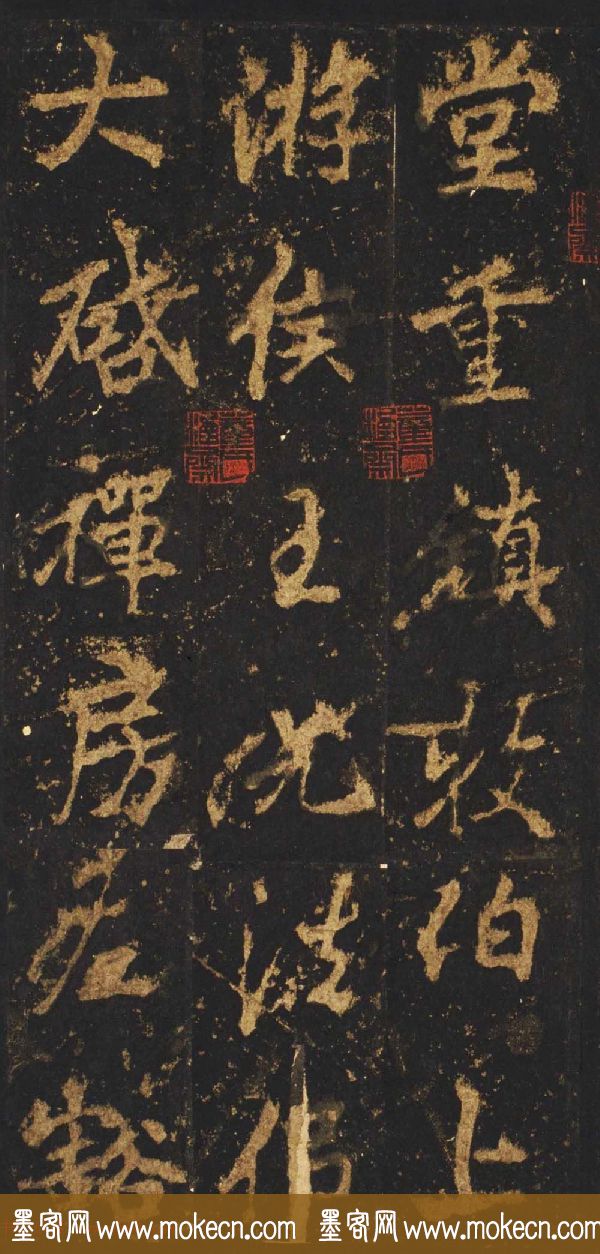 堂重鎮牧伯上
游侯王况法侣
大啓禪房豁
墨客网 www.mokecn.com 墨客网 www.mokecn.com